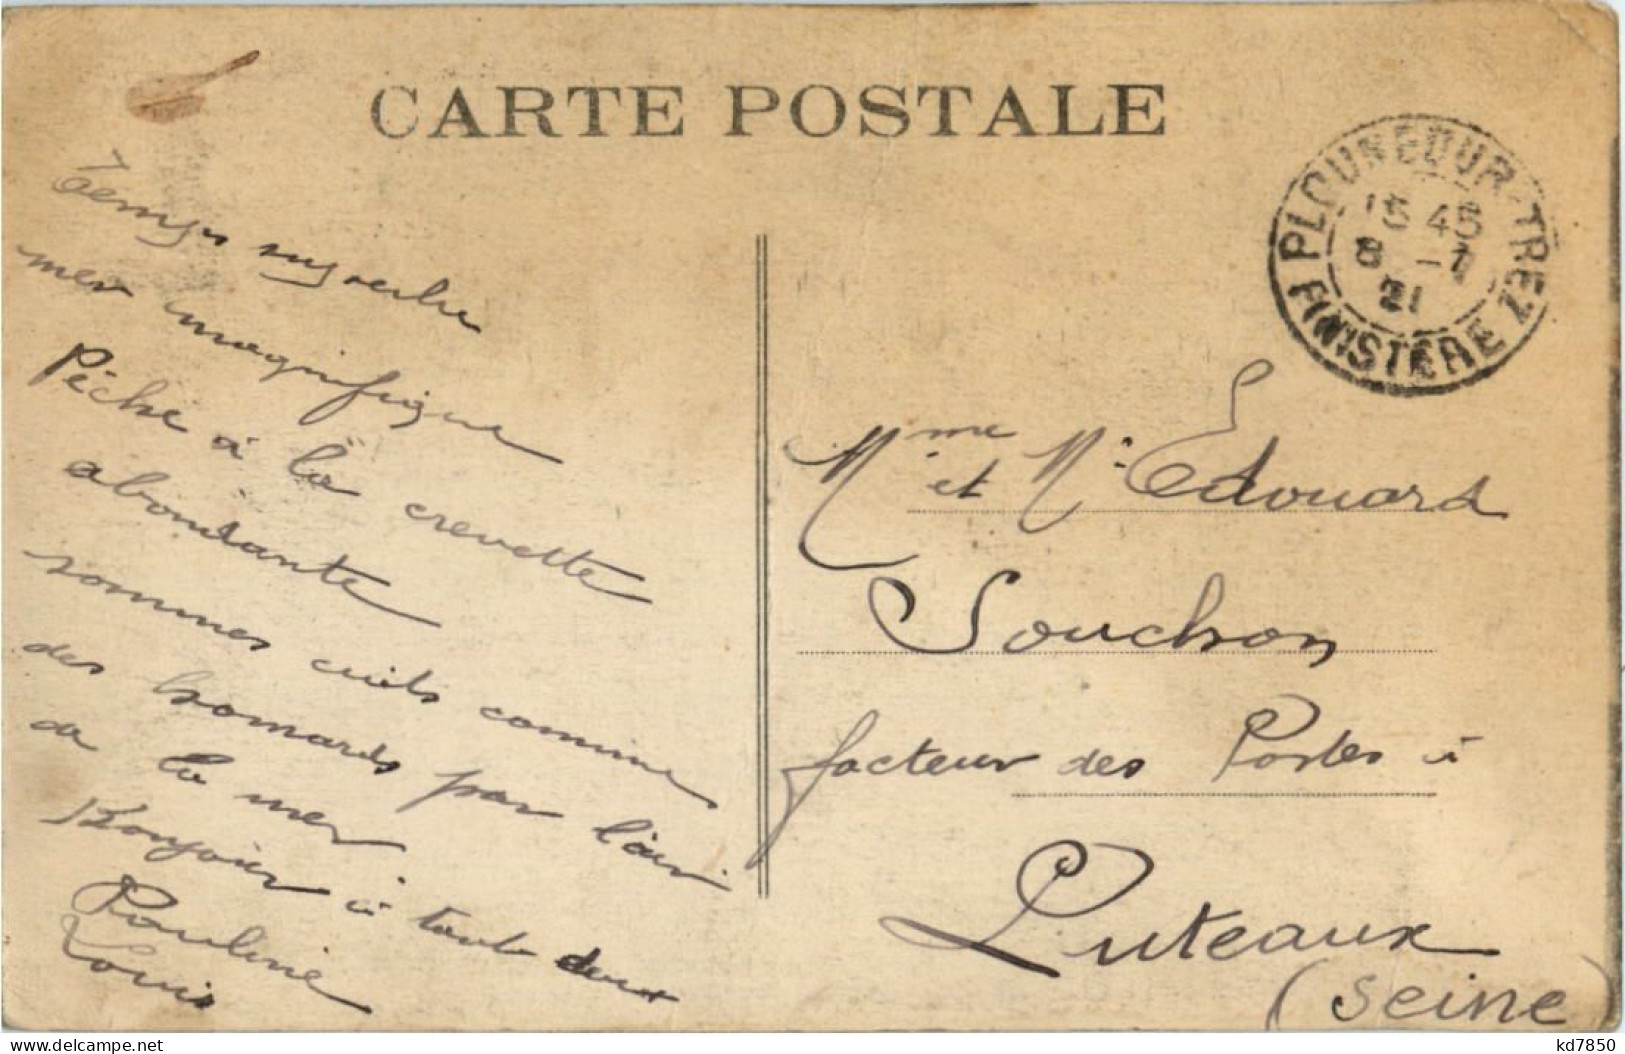 CARTE POSTALE
PLOUNEOUR-TREZ
FINISTÈRE
15 45
8 -7
21
Temps superbe
mer magnifique
Pêche à la crevette
abondante
sommes cuits comme
des homards par l'air
de la mer
Bonjour à tout deux
Pauline
Louis
Mme et Mr Edouard
Souchon
facteur des Postes à
Puteaux
(Seine)
kd7850